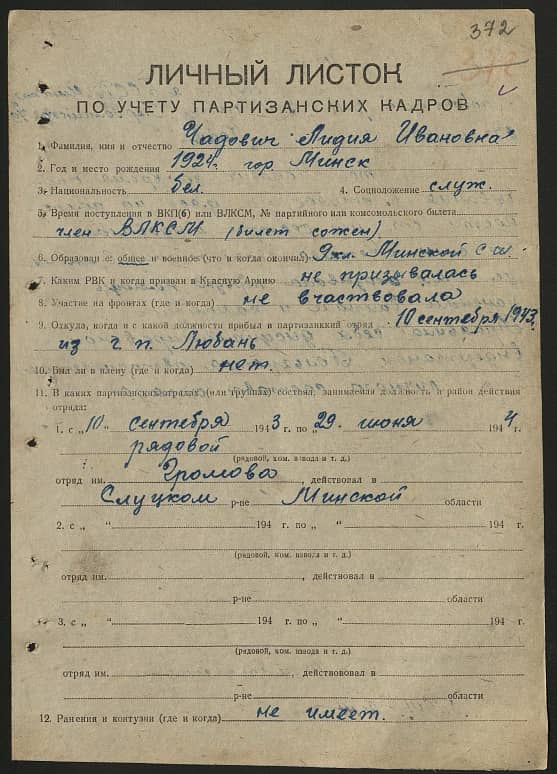 372
ЛИЧНЫЙ ЛИСТОК
ПО УЧЕТУ ПАРТИЗАНСКИХ КАДРОВ
1. Фамилия, имя и отчество Чадович Лидия Ивановна
2. Год и место рождения 1924. гор. Минск
3. Национальность бел. 4. Соцположение служ.
5. Время поступления в ВКП(б) или ВЛКСМ, № партийного или комсомольского билета
член ВЛКСМ (билет сожен)
6. Образование: общее и военное (что и когда окончил) 9 кл. Минской с. ш.
7. Каким РВК и когда призван в Красную Армию не призывалась
8. Участие на фронтах (где и когда) не вчаствовала
9. Откуда, когда и с какой должности прибыл в партизанский отряд 10 сентября 1943.
из г. п. Любань
10. Был ли в плену (где и когда) нет.
11. В каких партизанских отрядах (или группах) состоял, занимаемая должность и район действия
отряда:
1. с „10" сентября 1943 г. по „29. июня 1944 г.
рядовой
(рядовой, ком. взвода и т. д.)
отряд им. Громова, действовал в
Слуцком р-не Минской области
2. с „ " 194 г. по „ " 194 г.
(рядовой, ком. взвода и т. д.)
отряд им. , действовал в
р-не области
3. с „ " 194 г. по „ " 194 г.
(рядовой, ком. взвода и т. д.)
отряд им. , действовал в
р-не области
12. Ранения и контузии (где и когда) не имеет.